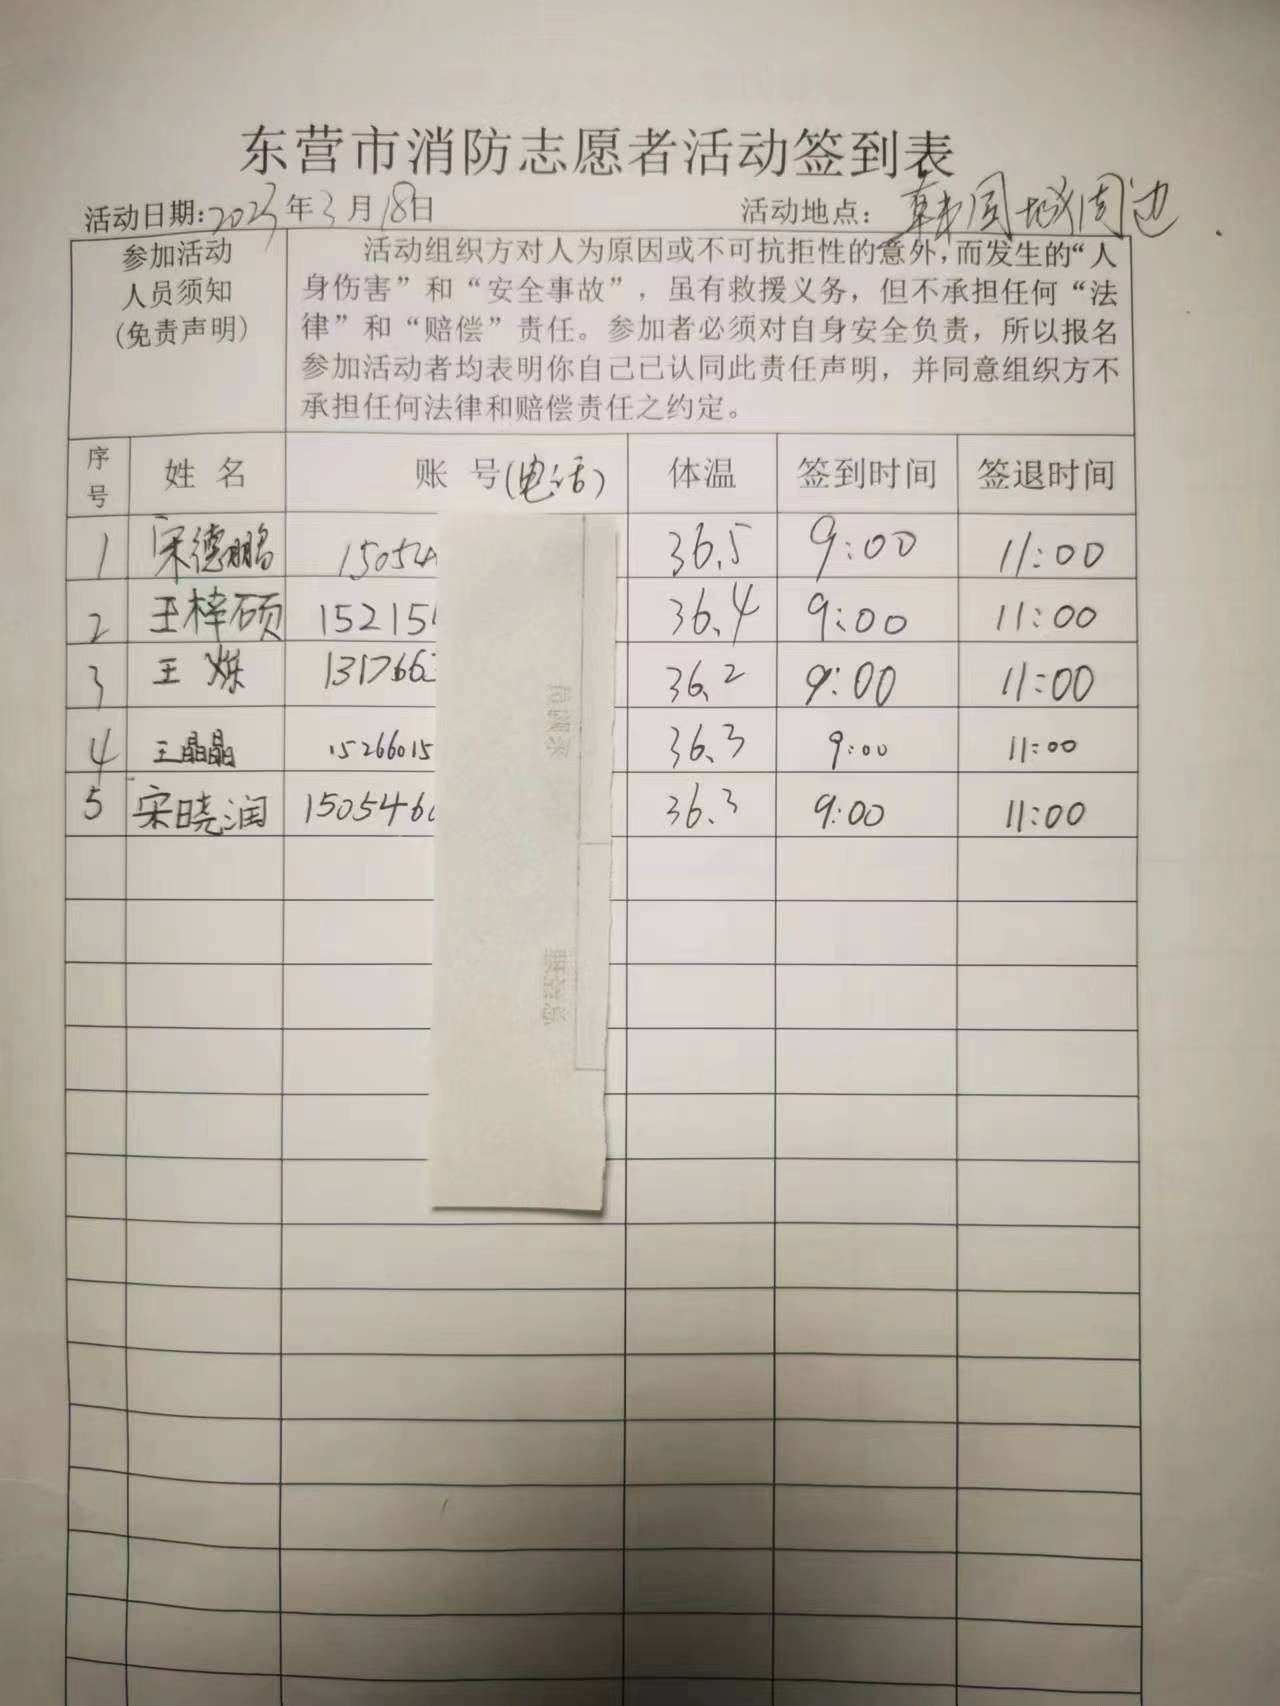 东营市消防志愿者活动签到表
活动日期:2023年3月18日 活动地点: 韩国城周边
参加活动
人员须知
(免责声明)
活动组织方对人为原因或不可抗拒性的意外,而发生的“人
身伤害”和“安全事故”,虽有救援义务,但不承担任何“法
律”和“赔偿”责任。参加者必须对自身安全负责,所以报名
参加活动者均表明你自己已认同此责任声明,并同意组织方不
承担任何法律和赔偿责任之约定。
序号 姓名 账号(电话) 体温 签到时间 签退时间
1 宋德鹏 15054 36.5 9:00 11:00
2 王梓硕 15215 36.4 9:00 11:00
3 王烁 1317663 36.2 9:00 11:00
4 王晶晶 15266015 36.3 9:00 11:00
5 宋晓润 1505466 36.3 9:00 11:00